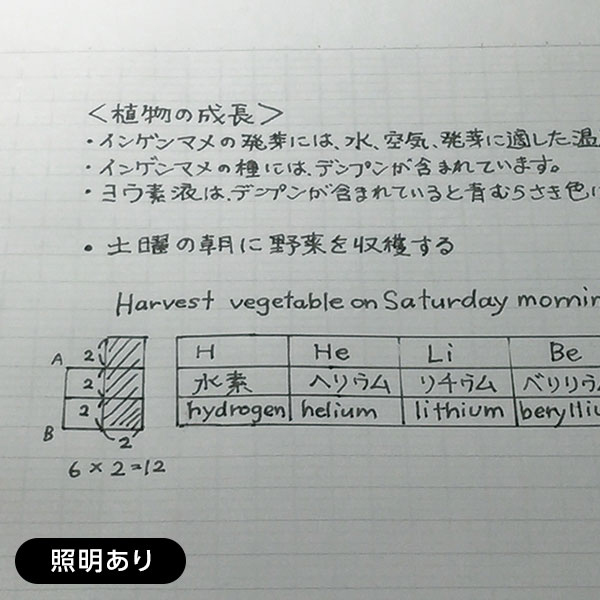 ＜植物の成長＞
・インゲンマメの発芽には、水、空気、発芽に適した温
・インゲンマメの種には、デンプンが含まれています。
・ヨウ素液は、デンプンが含まれていると青むらさき色に
・土曜の朝に野菜を収穫する
Harvest vegetable on Saturday mornin
A 2
2
2
B 2
6 × 2 = 12
H He Li Be
水素 ヘリウム リチウム ベリリウ
hydrogen helium lithium berylliu
照明あり